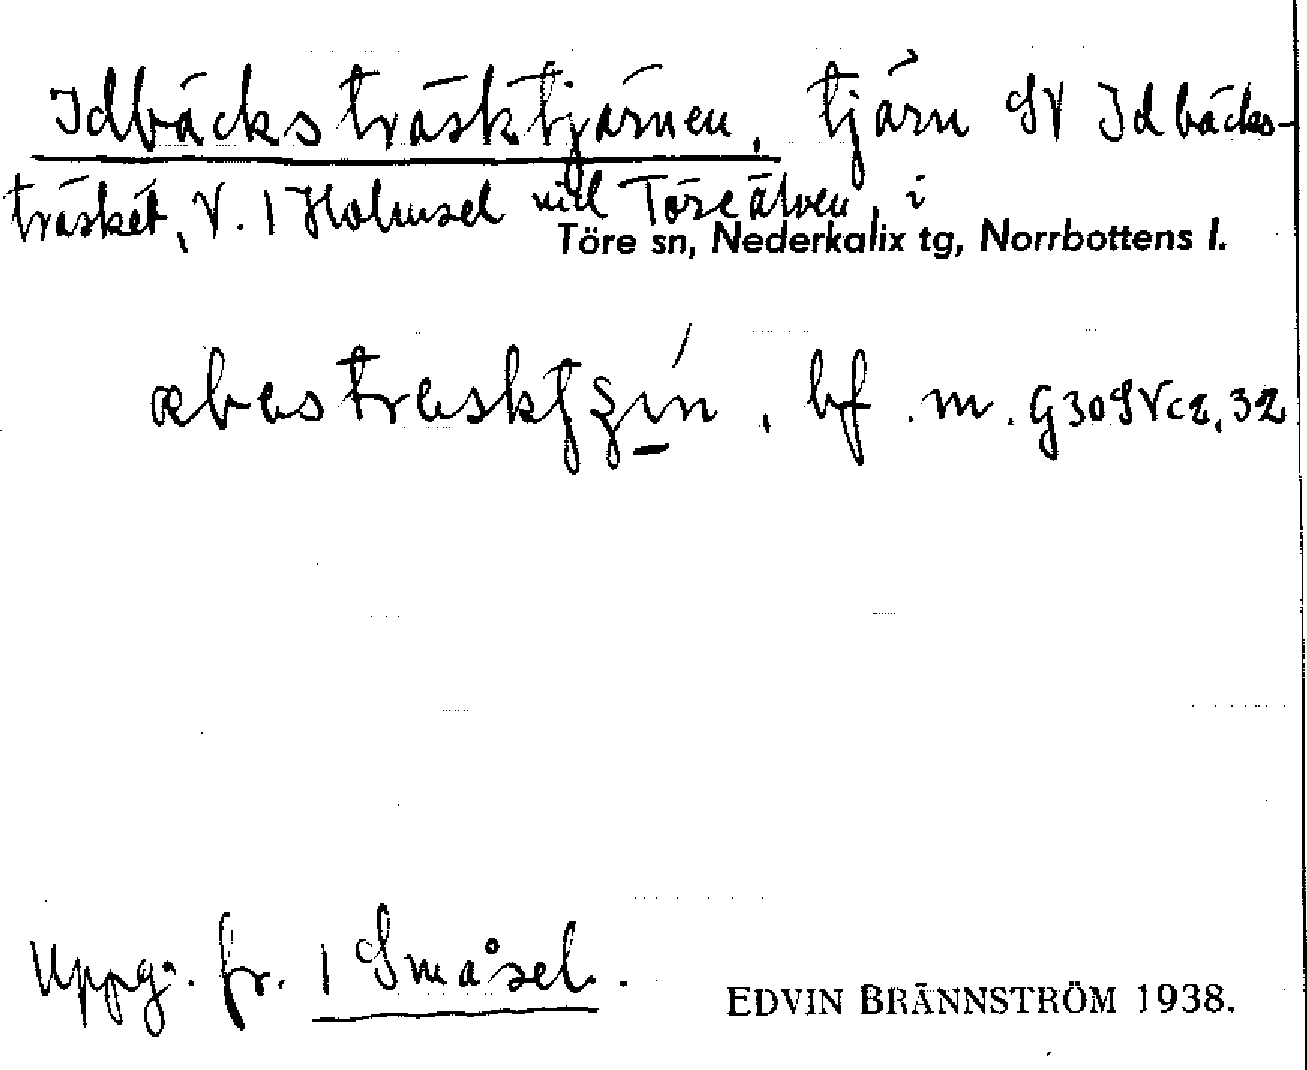 Idbäcksträsktjärnen, tjärn SV Idbäcks-
träsket, V. 1 Holmsel vid Töreälven, i
Töre sn, Nederkalix tg, Norrbottens l.
bf. m. G30SVc2,32
Uppg. fr. 1 Småsel.
EDVIN BRÄNNSTRÖM 1938.